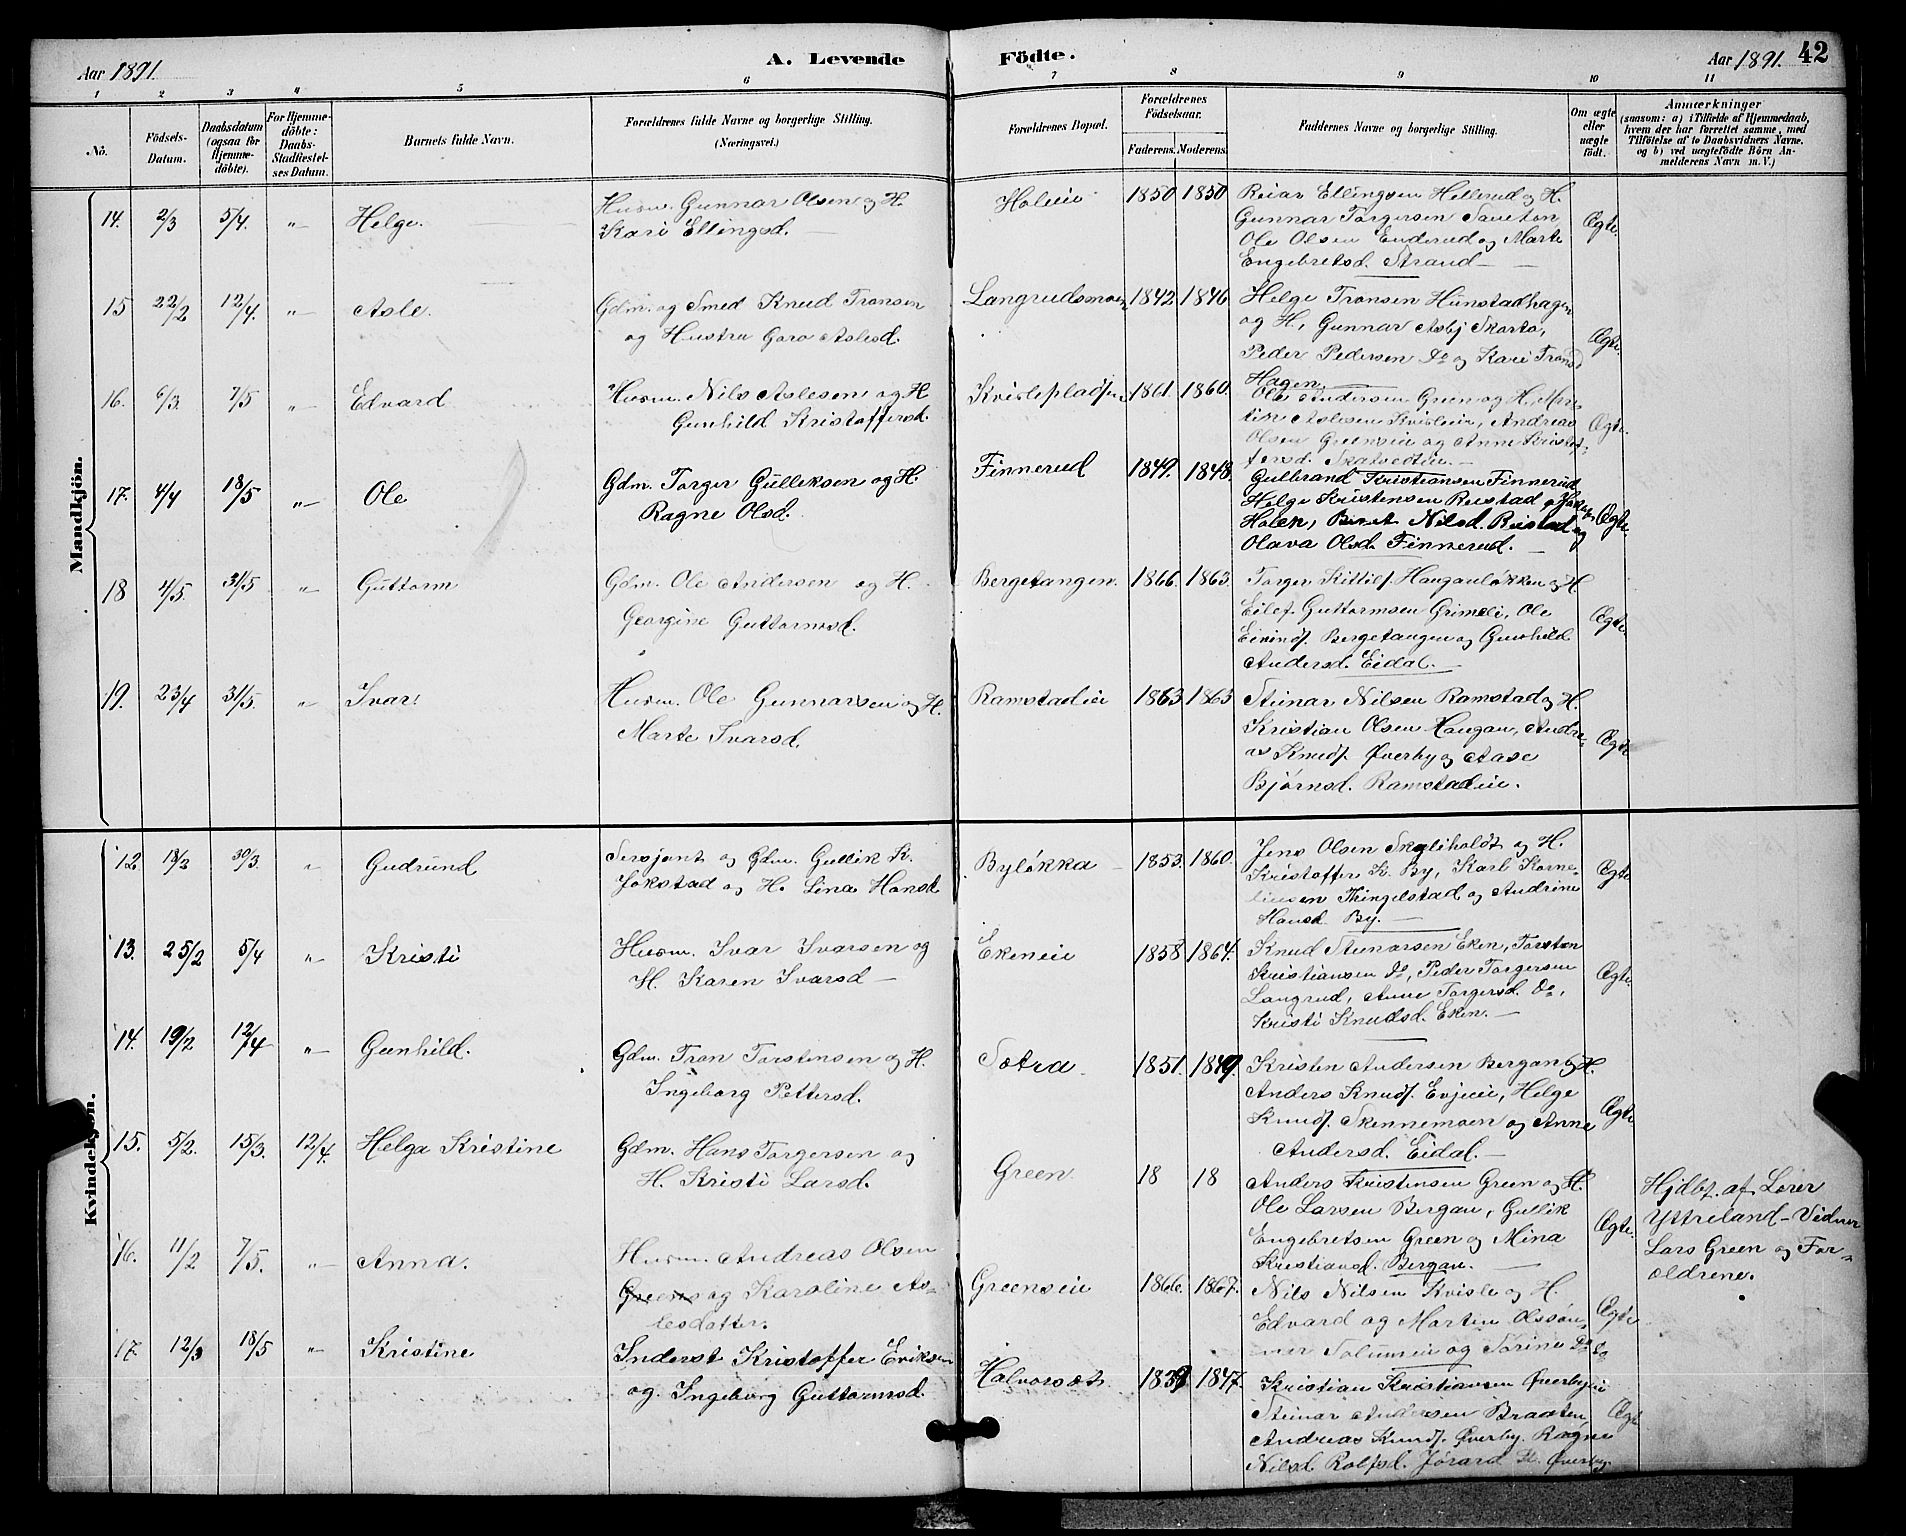 Aar 1891.
A. Levende
Födte.
Aar 1891.
42
1 2 3 4 5 6 7 8 9 10 11
No.
Födsels-
Datum.
Daabsdatum
(ogsaa for
Hjemme-
döbte).
For Hjemme-
döbte:
Daabs-
Stadfæstel-
ses Datum.
Barnets fulde Navn.
Forældrenes fulde Navne og borgerlige Stilling.
(Næringsvei.)
Forældrenes Bopæl.
Forældrenes
Födselsaar.
Faderens. Moderens.
Faddernes Navne og borgerlige Stilling.
Om ægte
eller
uægte
født.
Anmærkninger
(saasom: a) i Tilfælde af Hjemmedaab,
hvem der har forrettet samme, med
Tilføielse af to Daabsvidners Navne.
og b) ved uægtefödte Börn An-
melderens Navn m. V.)
Mandkjön.
14. 2/3 5/4. " Helge. Husm. Gunnar Olsen og H.
Kari Ellingsd.
Holeie 1850 1850 Reiar Ellingsen Hellerud og H.
Gunnar Torgersen
Ole Olsen Enderud og Marte
Engebretsd. Strand
Ægte.
15 22/2 12/4. " Asle. Gdm. og Smed Knud Tronsen
og Hustru Goro Aslesd.
Langrudsmoen 1842 1846 Helge Tronsen Hunstadhagen
og H., Gunnar Asbj Skarto,
Peder Pedersen Do og Kari Tronsd
Hagen
Ægte.
16. 6/3. 7/5 " Edvard Husm. Nils Aslesen og H
Gunhild Kristoffersd.
Kvislepladsen 1861. 1860. Ole Andersen Green og H, Mar-
tin Aslesen Kvisleeie, Andreas
Olsen Greenseie og Anne Kristof-
fersd.
Ægte.
17. 4/4 18/5 " Ole Gdm. Torger Gulleksen og H.
Ragne Olsd.
Finnerud 1849. 1848. Gulbrand Kristiansen Finnerud
Helge Kristensen Rustad
Holen, Beret Nilsd. Rustad og
Olava Olsd. Finnerud.
Ægte.
18 4/5. 31/5 " Guttorm Gdm. Ole Andersen og H.
Georgine Guttormsd.
Bergetangen. 1866. 1863. Torger Kittilf. Hauganløkken og H
Eilef Guttormsen Grimeli, Ole
Eivindf. Bergetangen og Gunhild
Andersd. Eidal.
Ægte.
19. 23/4 31/5. " Ivar Husm. Ole Gunnarsen og H.
Marte Ivarsd.
Ramstadeie 1863 1863 Steinar Nilsen Ramstad og H.
Kristian Olsen Haugan, Andre-
as Knudf. Øverby og Aase
Bjørnsd. Ramstadeie.
Ægte
Kvindekjön.
12. 18/3 30/3. " Gudrund Sersjant og Gdm. Gullik K.
Jokstad og H. Lina Hansd
Byløkka 1853. 1860. Jens Olsen og H.
Kristoffer K. By, Karl Korne-
liusen Thingelstad og Andrine
Hansd. By.
Ægte
13. 25/2 5/4 " Kristi Husm. Ivar Ivarsen og
H. Karen Ivarsd
Ekeneie 1858 1864. Knud Steinarsen Eken, Torsten
Kristiansen Do, Peder Torgersen
Langrud, Anne Torgersd. Do,
Kristi Knudsd. Eken.
Ægte.
14. 19/2 12/4 " Gunhild. Gdm. Tron Torstensen og H.
Ingeborg Pettersd.
Sætra 1851. 1849. Kristen Andersen Bergan og H.
Anders Knudf. Evjeeie, Helge
Knudf. Skennemoen og Anne
Andersd. Eidal.
Ægte
15. 5/2. 15/3. 12/4. Helga Kristine Gdm. Hans Torgersen og
H. Kristi Larsd.
Green. 18 18 Anders Kristensen Green og H.
Ole Larsen Bergan, Gullik
Engebretsen Green og Mina
Kristiansd. Bergan.
Ægte. Hjdbt. af Lærer
Ytreland - Vidner
Lars Green og For-
ældrene.
16. 11/2 7/5. " Anna. Husm. Andreas Olsen
Greens og Karoline As-
lesdatter.
Greenseie 1866. 1867. Nils Nilsen Kvisle og H.
Edvard og Martin Olssøn-
ner og Sorine
Ægte
17 12/3 18/5 " Kristine Inderst Kristoffer Eriksen
og Ingeborg Guttormsd.
Halvorset 1839 1847. Kristian Kristiansen Øverbyeie
Steinar Andersen Braaten,
Andreas Knudf. Øverby. Ragne
Nilsd Rolfsd. Jørand Do Øverby.
Ægte